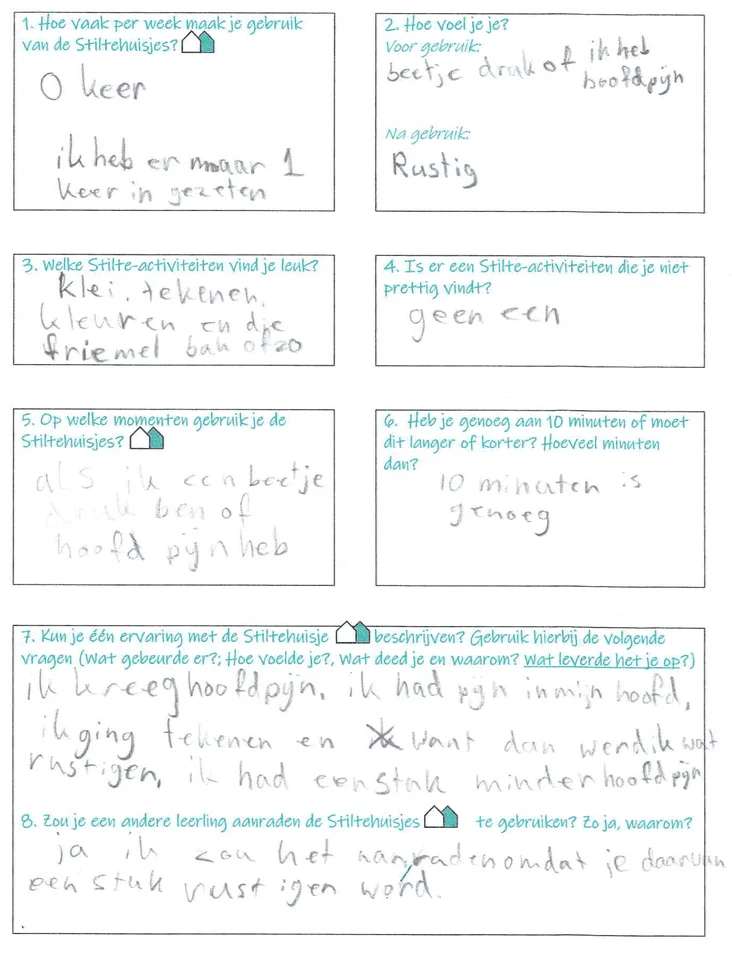 1. Hoe vaak per week maak je gebruik
van de Stiltehuisjes?
0 keer
ik heb er maar 1
keer in gezeten
2. Hoe voel je je?
Voor gebruik:
beetje druk of ik heb
hoofdpijn
Na gebruik:
Rustig
3. Welke Stilte-activiteiten vind je leuk?
klei, tekenen,
kleuren en die
friemel bak ofzo
4. Is er een Stilte-activiteiten die je niet
prettig vindt?
geen een
5. Op welke momenten gebruik je de
Stiltehuisjes?
als ik een beetje
druk ben of
hoofd pijn heb
6. Heb je genoeg aan 10 minuten of moet
dit langer of korter? Hoeveel minuten
dan?
10 minuten is
genoeg
7. Kun je één ervaring met de Stiltehuisje beschrijven? Gebruik hierbij de volgende
vragen (Wat gebeurde er?; Hoe voelde je?, Wat deed je en waarom? Wat leverde het je op?)
ik kreeg hoofdpijn, ik had pijn in mijn hoofd,
ik ging tekenen en want dan werd ik wat
rustigen, ik had een stuk minder hoofdpijn
8. Zou je een andere leerling aanraden de Stiltehuisjes te gebruiken? Zo ja, waarom?
ja ik zou het aanraden omdat je daarvan
een stuk rustigen word.